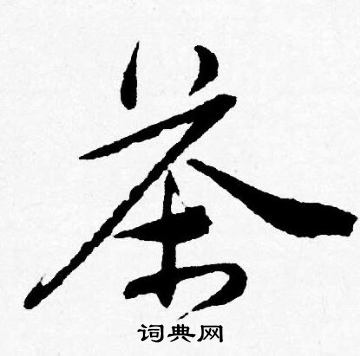 茶
词典网